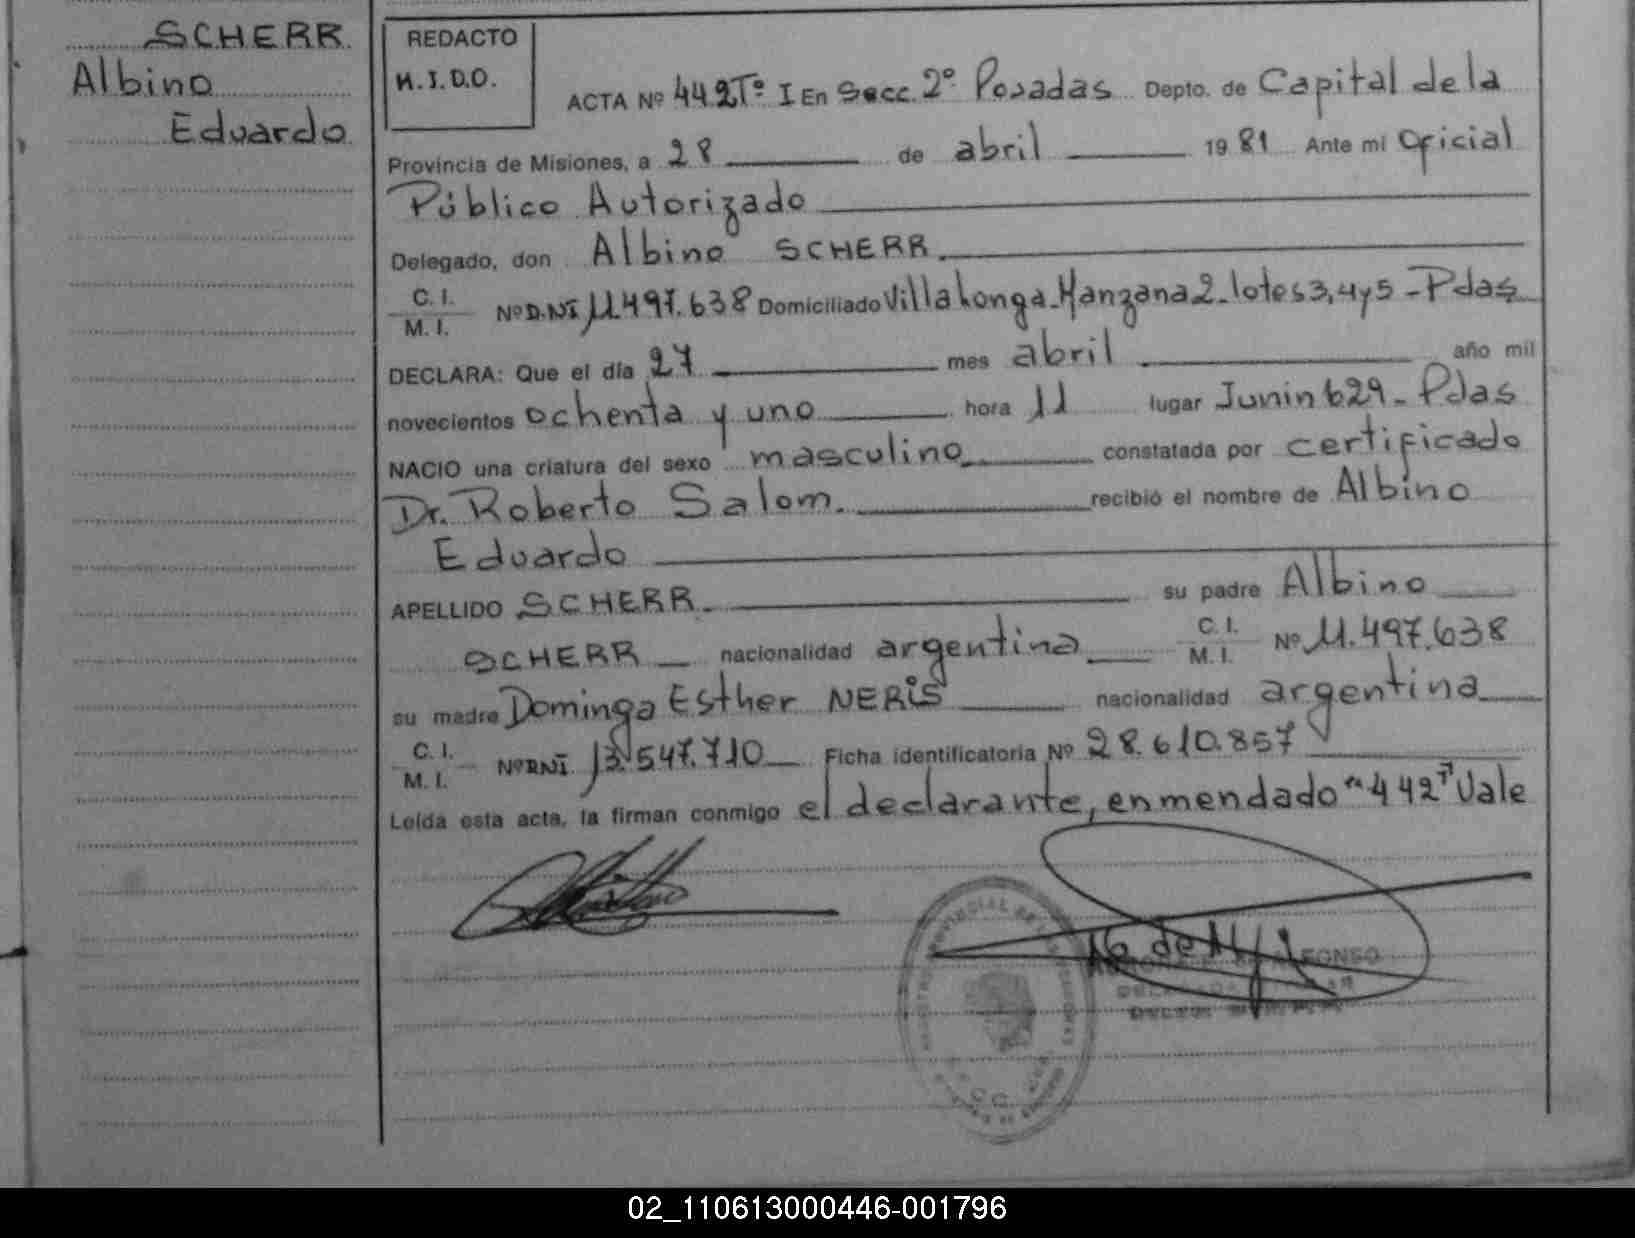 SCHERR
Albino
Eduardo
REDACTO
M.I.D.O.
ACTA Nº 442 Tº I En Secc. 2º Posadas Depto. de Capital de la
Provincia de Misiones, a 28 de abril 1981 Ante mi Oficial
Público Autorizado
Delegado, don Albino SCHERR.
C. I.
M. I. Nº D.NI 11.497.638 Domiciliado Villalonga-Manzana 2-lotes 3,4 y 5 - Pdas
DECLARA: Que el día 27 mes abril año mil
novecientos ochenta y uno hora 11 lugar Junin 629 - Pdas
NACIO una criatura del sexo masculino constatada por certificado
Dr. Roberto Salom. recibió el nombre de Albino
Eduardo
APELLIDO SCHERR. su padre Albino
SCHERR nacionalidad argentina C. I. M. I. Nº 11.497.638
su madre Dominga Esther NERIS nacionalidad argentina
C. I.
M. I. Nº DNI. 13.547.710 Ficha identificatoria Nº 28.610.857
Leída esta acta, la firman conmigo el declarante, enmendado "442" Vale
02_110613000446-001796